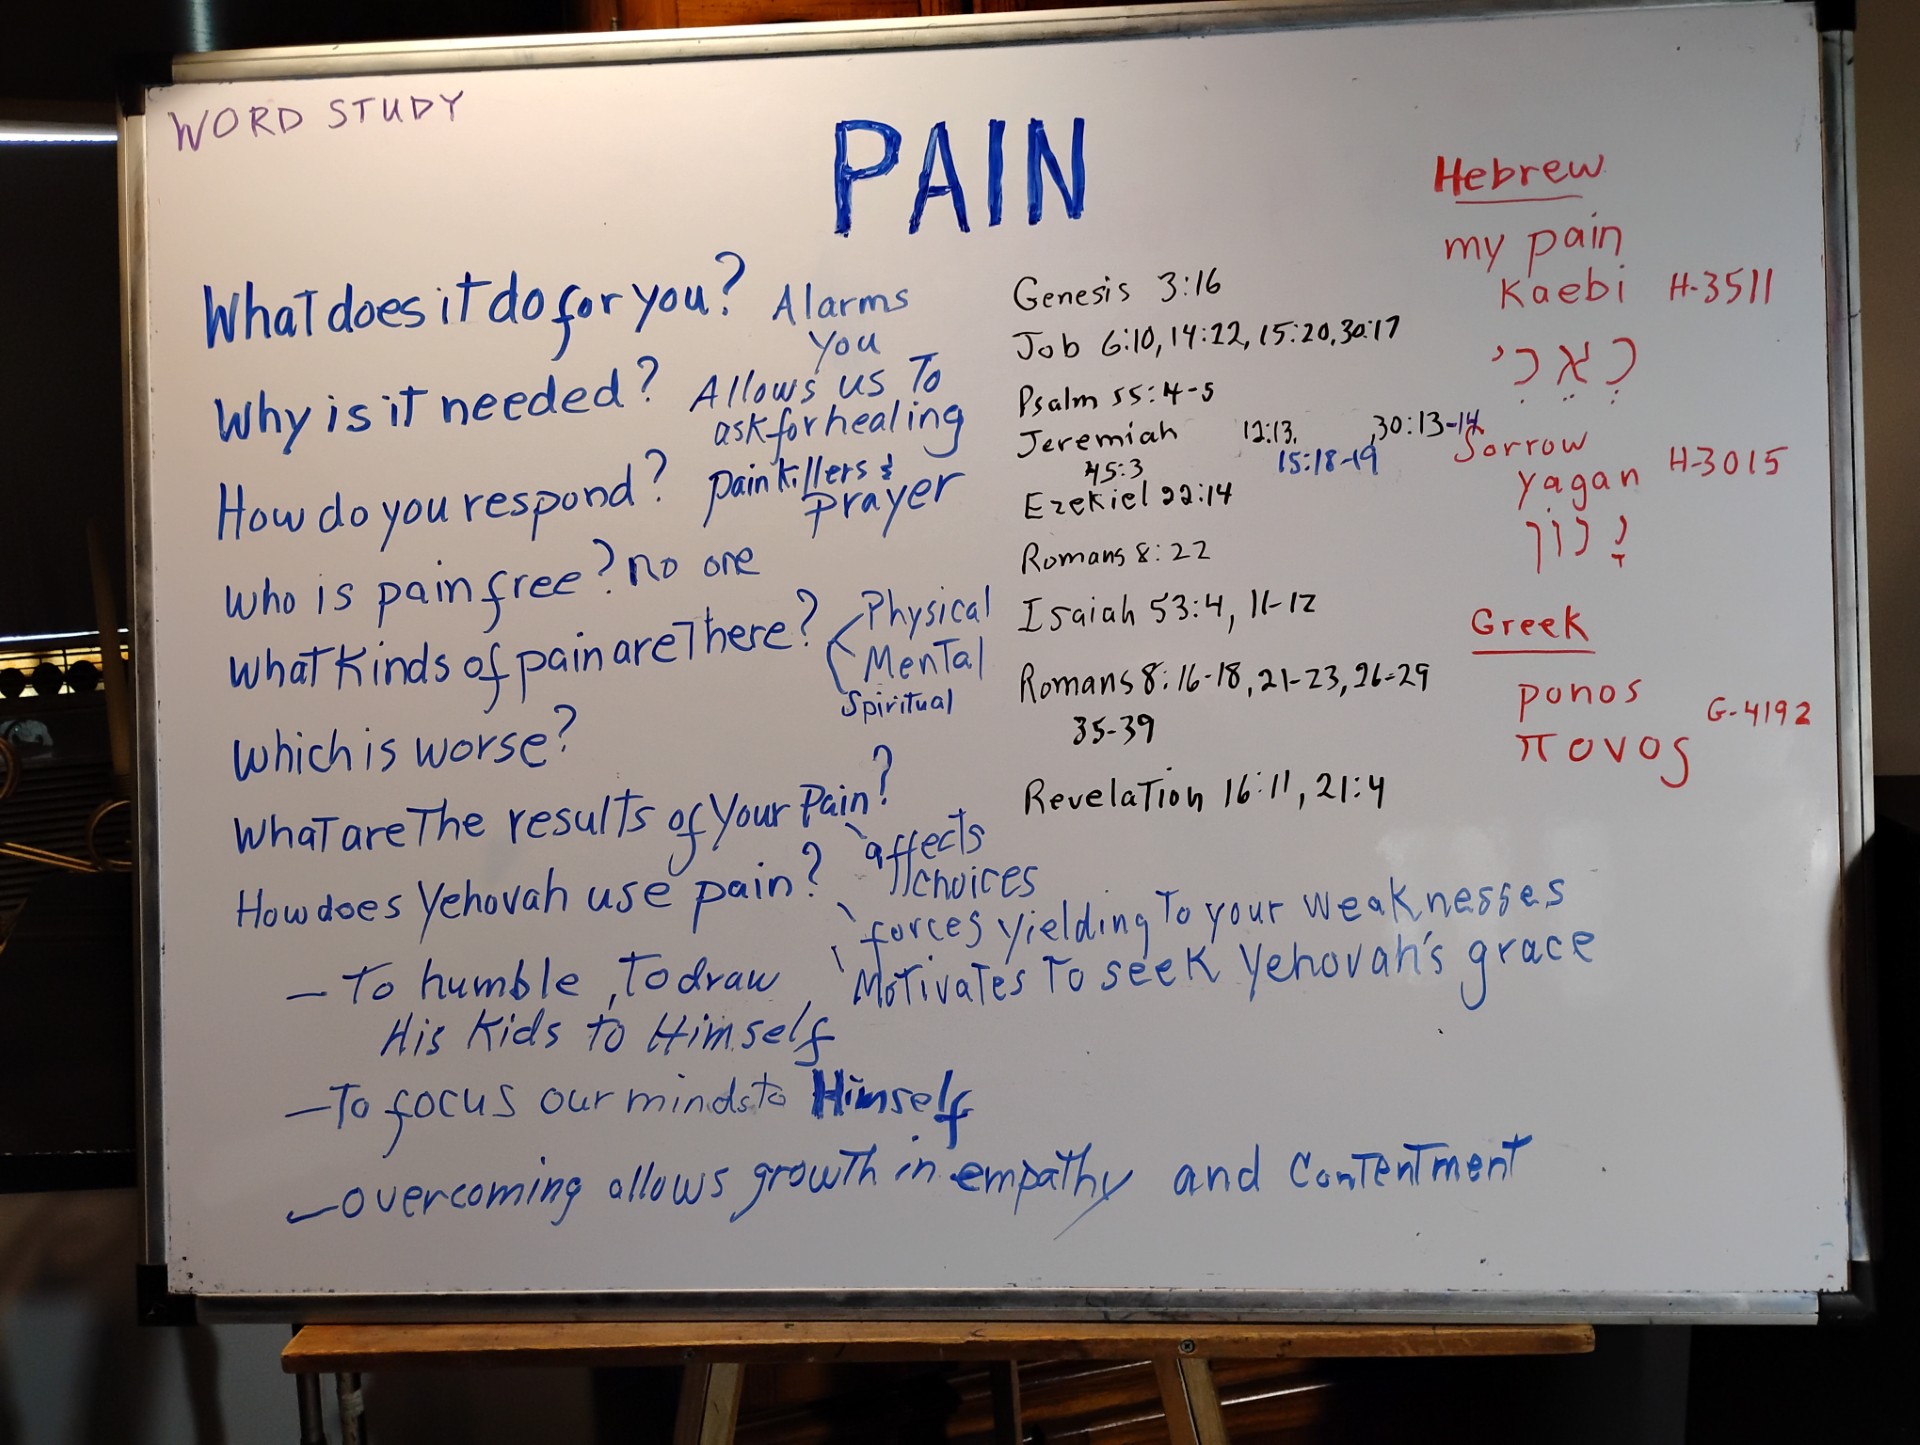 WORD STUDY
PAIN
What does it do for you? Alarms
you
Why is it needed? Allows us To
ask for healing
How do you respond? painkillers &
prayer
Who is pain free? no one
What Kinds of pain are There? Physical
Mental
Spiritual
Which is worse?
What are The results of Your Pain?
affects
choices
forces yielding To your weaknesses
Motivates To seek Yehovah's grace
How does Yehovah use pain?
- To humble, To draw
His Kids to Himself
- To focus our minds to Himself
- overcoming allows growth in empathy and Contentment
Genesis 3:16
Job 6:10, 14:22, 15:20, 30:17
Psalm 55:4-5
Jeremiah 12:13, 30:13-14
45:3 15:18-19
Ezekiel 22:14
Romans 8:22
Isaiah 53:4, 11-12
Romans 8:16-18, 21-23, 26-29
35-39
Revelation 16:11, 21:4
Hebrew
my pain
Kaebi H-3511
כְאֵבִי
Sorrow
yagan H-3015
Greek
ponos G-4192
πονος